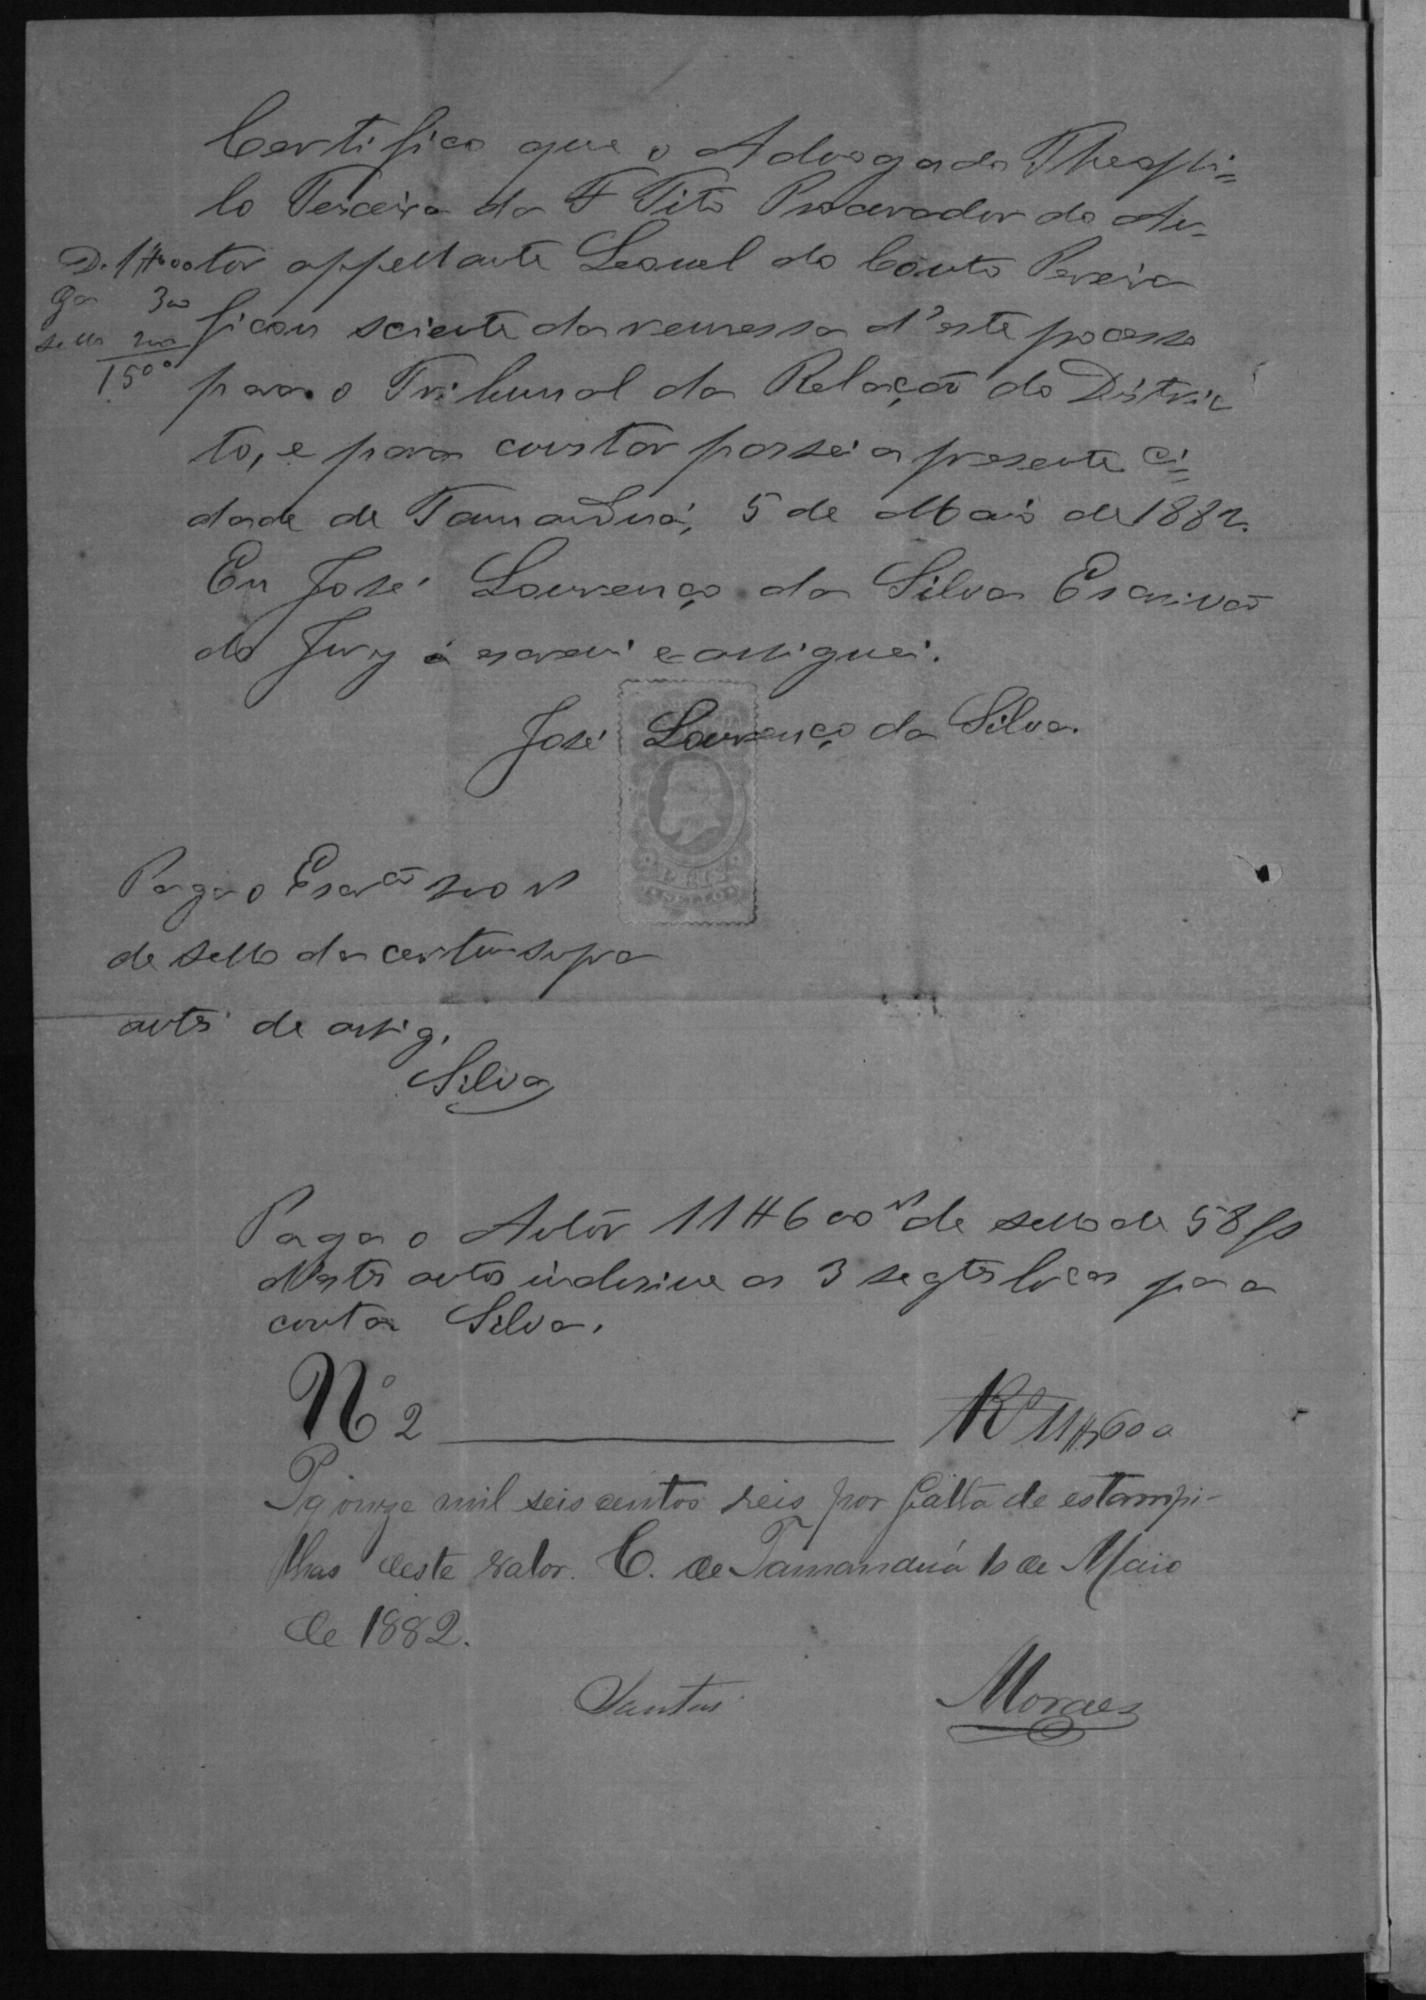 Certifico que o Advogado Theophi=
lo Pereira da F Tito Procurador do Au-
D. 1#000
tor appellante Leonel do Couto Pereira
300
ficou sciente da remessa d'este processo
sello 200
1500
para o Tribunal da Relação do Distric
to, e para constar passei a presente ci=
dade de Tamanduá, 5 de Maio de 1882.
Eu José Lourenço da Silva Escrivão
do Jury o escrevi e assignei.
José Lourenço da Silva.
Paga o Escrcão 200 rs
de sello da certam supra
de assig.
Silva
Paga o Autôr 11#600 rs de sello de 58 fs
destes autos inclusive as 3 segtes para
conta Silva.
Nº 2 Rs 11#600
Pg onze mil seis centos reis por falta de estampi-
lhas deste valor. C. de Tamanduá 10 de Maio
de 1882.
Santos Moraes